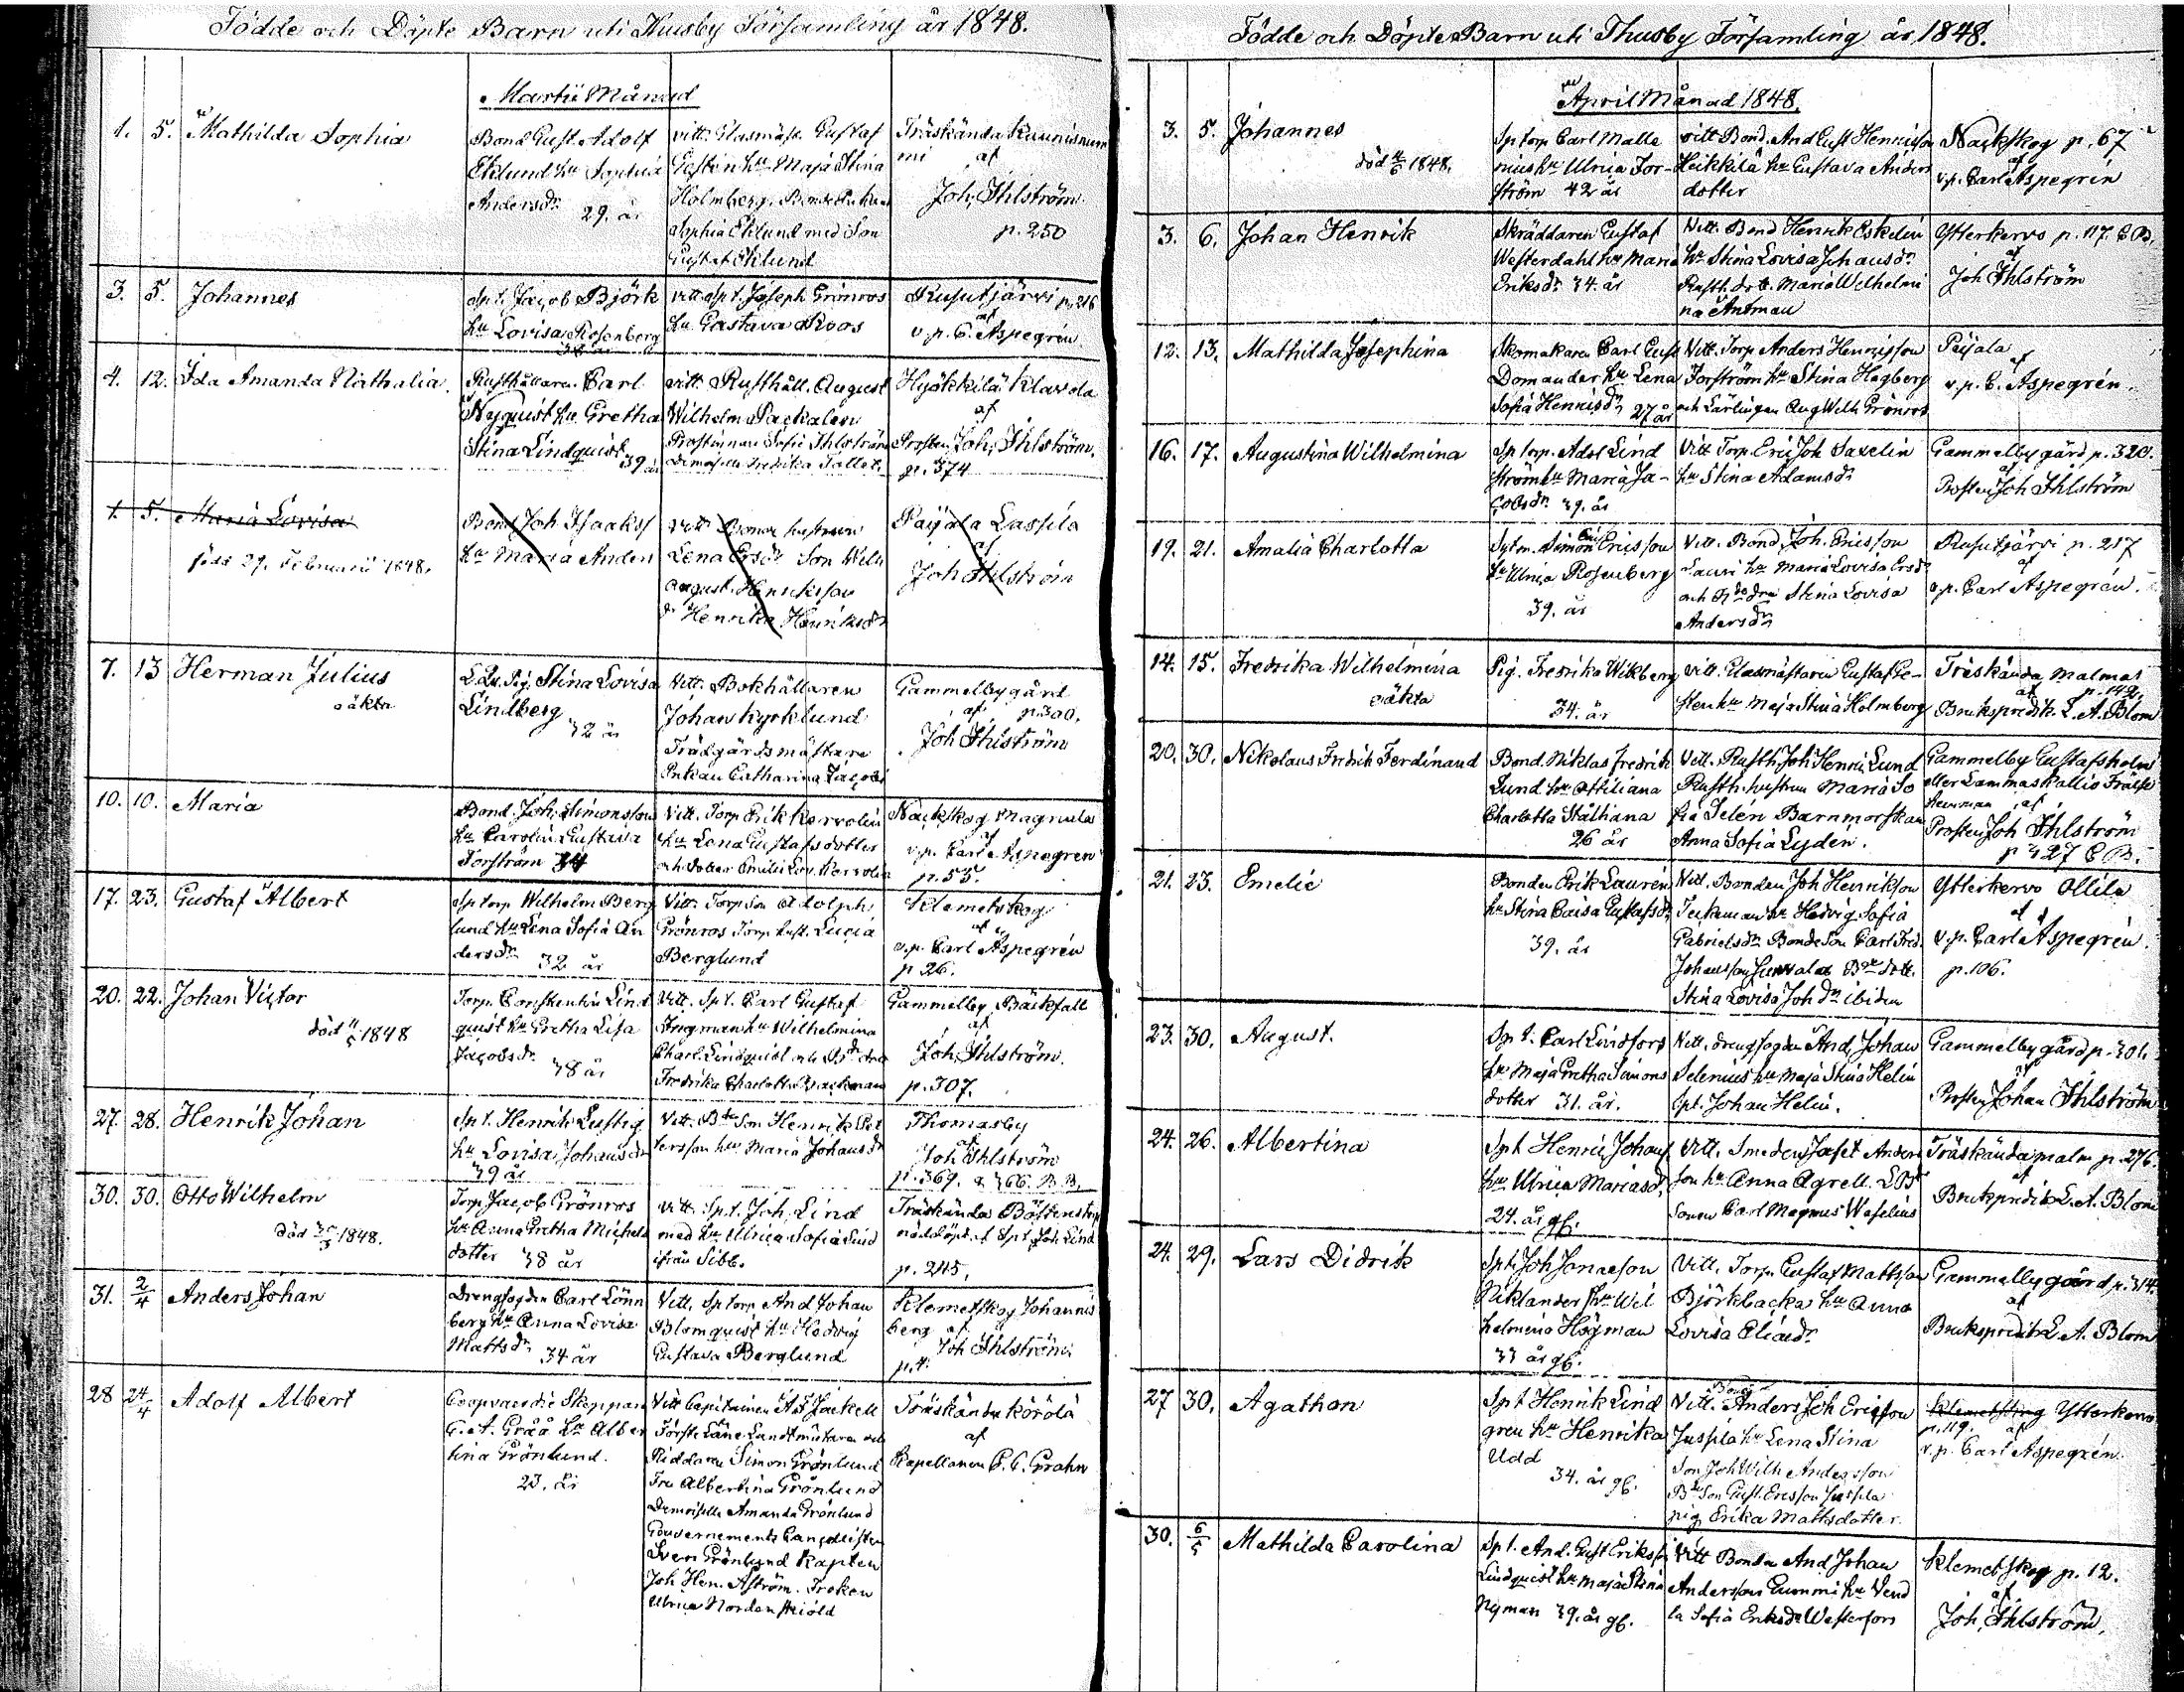 Födde och Döpte Barn uti Thusby Församling år 1848.
Martii Månad
1. 5. Mathilda Sophia
Bond Gust. Adolf
Eklund hu Sophia
Andersdr 29. år
vitt. Glasmäst. Gustaf
hu Maja Stina
Holmberg.
Sophia Eklund med Son
Gustaf Eklund
Träskända Kaunisnum
mi af
Joh. Ihlström
p. 250
3. 5. Johannes
Spt. Jacob Björk
hu Lovisa Rosenberg
vitt. Spt. Joseph Grönros
hu Gustava Roos
Rusutjärvi p. 216
af
v. p. C. Aspegrén
4. 12. Ida Amanda Nathalia.
Rusthållaren Carl
Nyquist hu Gretha
Stina Lindquist 39 år
vitt. Rusthåll. August
Wilhelm Packalen
Prostinnan Sofie Ihlström
Demoiselle Fredrika
Hyökkilä Klavda
af
Prosten Joh. Ihlström.
p. 374
1. 5. Maria Lovisa
född 29. Februarii 1848.
Bond Joh Isaakss
hu Maria Anders
vitt Bonde hustrun
Lena Ersdr Son Wilh
August Henriksson
dr Henrika Henriksdr
Paijala Lassila
af
Joh Ihlström
7. 13 Herman Julius
oäkta
Pig. Stina Lovisa
Lindberg
32 år
Vitt. Bokhållaren
Johan Kyrklund
Trädgårdsmästare
Enkan Catharina Jacobs
Gammelbygård
af p. 300.
Joh Ihlström
10. 10. Maria
Bond. Joh. Simonsson
hu Carolin Gustava
Forström 34
Vitt. Torp Erik Kervolin
hu Lena Gustafsdotter
och dotter Emilie Lov. Kervolin
Nackskog Magnula
af
v. p. Carl Aspegren
p. 53.
17. 23. Gustaf Albert
Sptorp Wilhelm Berg
lund hu Lena Sofia An
dersdr 32 år
Vitt. Torpson Adolph
Grönros Torp hust. Lucia
Berglund
Klemetskog
af
v. p. Carl Aspegrén
p 26.
20. 22. Johan Victor
död 11/5 1848
Torp. Constantin Lind
quist hu Gretha Lisa
Jacobsdr 38 år
Vitt. Spt. Carl Gustaf
hu Wilhelmina
Charl. Lindquist och
Fredrika Charlotta Backman
Gammelby Bäckfall
af
Joh. Ihlström.
p. 307.
27. 28. Henrik Johan
Spt. Henrik Lustig
hu Lovisa Johansdr
39 år
Vitt. Bde Son Henrik Pet
tersson hu Maria Johansdr
Thomasby
af
Joh Ihlström
p. 369. & 366. B.B.
30. 30. Otto Wilhelm
död 30/3 1848.
Torp. Jacob Grönros
hu Anna Gretha Michels
dotter 38 år
vitt. Spt. Joh. Lind
med hu Ulrica Sofia Lind
ifrån Sibb.
Träskända
nöddöpt af Spt. Joh Lind
p. 245.
31. 2/4 Anders Johan
Drengfogden Carl Lönn
berg hu Anna Lovisa
Mattsdr 34 år
Vitt. Sptorp And Johan
Blomquist hu Hedvig
Gustava Berglund
Klemetskog Johannis
berg af
Joh Ihlström
p. 4.
28 24/4 Adolf Albert
Coopvaerdie Skeppare
G. A. Gråå hu Alber
tina Grönlund.
23. år
Vitt Capitainen Jackell
Förste Läne Landtmätaren och
Riddaren Simon Grönlund
Fru Albertina Grönlund
Demoiselle Amanda Grönlund
Gouvernements Cancellisten
Sven Grönlund Kapten
Joh Hen. Åström. Fröken
Ulrica Nordenskiöld
Träskända Körölä
af
Kapellanen C. C. Grahn
Födde och Döpte Barn uti Thusby Församling år 1848.
April Månad 1848.
3. 5. Johannes
död 4/6 1848.
Sptorp Carl Malle
nius hu Ulrica For-
ström 42 år
vitt Bond. And Gust Henricsson
Heikkilä hu Gustava Anders
dotter
Nackskog p. 67
af
v. p. Carl Aspegrén
3. 6. Johan Henrik
Skräddaren Gustaf
Westerdahl hu Maria
Eriksdr 34. år
Vitt. Bond Henrik Eskelin
hu Stina Lovisa Johansdr
Rusth. dott. Maria Wilhelmi
na Antman
Ytterkervo p. 117. C.B.
af
Joh Ihlström
12. 13. Mathilda Josephina
Skomakaren Carl Gust
Domander hu Lena
Sofia Henricsdr 27 år
Vitt. Torp Anders Henricsson
Forström hu Stina Hagberg
och Lärlingen Aug Wilh Grönros
Paijala
af
v. p. C. Aspegrén
16. 17. Augustina Wilhelmina
Sptorp. Adol Lind
ström hu Maria Ja-
cobsdr 39. år
Vitt Torp Eric Joh Saxelin
hu Stina Adamsdr
Gammelbygård p. 320.
af
Prosten Joh Ihlström
19. 21. Amalia Charlotta
Sytm. Simon Ericsson
hu Ulrica Rosenberg
39. år
Vitt. Bond. Joh. Ericsson
Lauri hu Maria Lovisa Ersdr
och Stina Lovisa
Andersdr
Rusutjärvi p. 217
af
v. p. Carl Aspegrén.
14. 15. Fredrika Wilhelmina
oäkta
Pig. Fredrika Wikberg
34. år
Vitt. Glasmästaren Gustaf Ge-
sten hu Maja Stina Holmberg
Träskända Malmas
af p. 142.
Brukspredik. L. A. Blom
20. 30. Nikolaus Fredrik Ferdinand
Bond. Niklas Fredrik
Lund hu Ottiliana
Charlotta Ståhlhana
26 år
Vitt. Rusth Joh Henric Lund
Rusth. hustrun Maria So
fia Selén Barnmorskan
Anna Sofia Lydén.
Gammelby Gustafsholm
eller Lammaskallio Frälse
hemman af
Prosten Joh Ihlström
p 327 C.B.
21. 23. Emelie
Bonden Erik Laurén
hu Stina Caisa Gustafsdr
39. år
Vitt. Bonden Joh Henriksson
hu Hedvig Sofia
Gabrielsdr Bondeson Carl Fred.
Johansson Bde dott.
Stina Lovisa Joh dr ibidem
Ytterkervo Ollila
af
v. p. Carl Aspegrén.
p. 106.
23. 30. August.
Spt. Carl Lindfors
hu Maja Gretha Simons
dotter 31. år.
Vitt. drengfogden And. Johan
Selenius hu Maja Stina Helin
Spt. Johan Helin.
Gammelbygård p. 301.
af
Prosten Johan Ihlström
24. 26. Albertina
Spt Henric Johans
hu Ulrica Mariasdr
24. år gf.
Vitt. Smeden Josef Anders
son hu Anna Agrell.
Sonen Carl Magnus Waselius
Träskända malm p. 276.
af
Brukspredik L. A. Blom
24. 29. Lars Didrik
Spt. Joh Jonaeson
Niklander hu Wil
helmina Högman
33 år gf.
Vitt. Torp. Gustaf Mattsson
Björkbacka hu Anna
Lovisa Eliaedr
Gammelbygård p. 314.
af
Brukspredik L. A. Blom
27 30. Agathon
Spt Henrik Lind
gren hu Henrika
Udd
34. år gf.
Bond
Vitt. Anders Joh Ericsson
Jussila hu Lena Stina
Son Joh Wilh Andersson
Bde Son Gust. Ericsson Jussila
pig Erika Mattsdotter.
Ytterkervo
p. 119. af
v. p. Carl Aspegrén.
30. 6/5 Mathilda Carolina
Spt. And. Gust Eriksson
Lindquist hu Maja Stina
Nyman 39. år gf.
Vitt Bonden And Johan
Andersson Gummi hu Vend
la Sofia Eriksdr Westerfors
Klemetskog p. 12.
af
Joh. Ihlström.